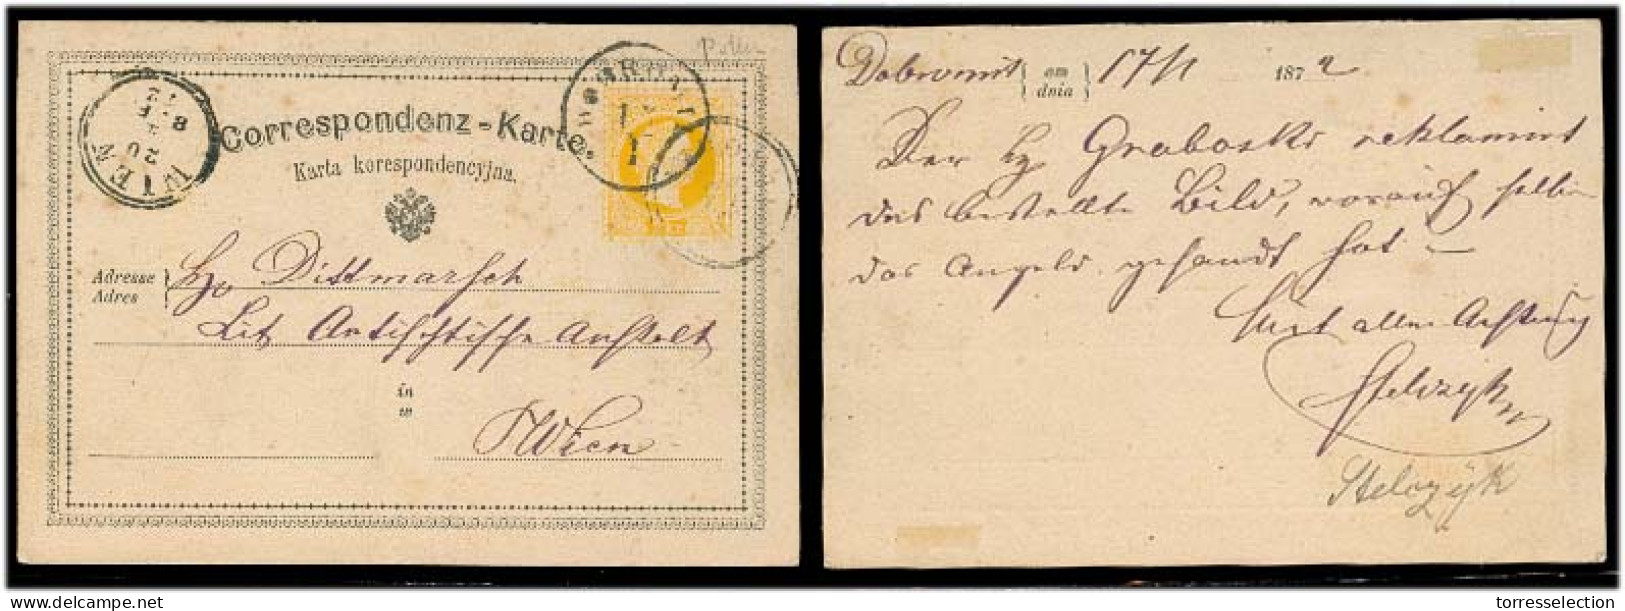 Poln
WIEN
20
1
8 F
72
DOBROMIL
17
1
Correspondenz-Karte.
Karta korespondencyjna.
Adresse
Adres
Dittmarsch
Lit Artischtische Anstalt
in
w
Wien
Dobromil am 17/1 1872
dnia
Der H Graboski reklamirt
das bestellte Bild, worauf selber
das Angeld gesandt hat –
Mit aller Achtung
Stelczyk
Stelczyk
torresselection